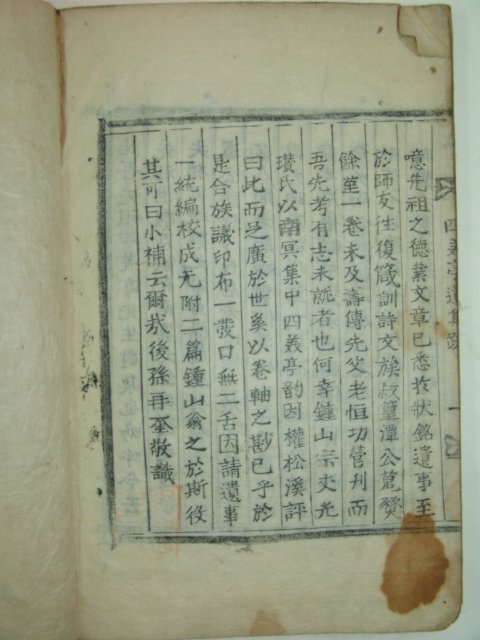 四美亭遺集跋 一
噫先祖之德業文章已悉於狀銘遺事至
於師友往復箴訓詩文族叔篁潭公蒐發
餘堇一卷未及壽傳先父老恒切營刊而
吾先考有志未就者也何幸鍾山宗丈光
瓚氏以南冥集中四美亭韵因權松溪評
曰此而足廣於世奚以卷軸之尠已乎於
是合族議印布一發口無二舌因請遺事
一統編校成尢附二篇鍾山翁之於斯役
其可曰小補云爾哉後孫再奎敬識